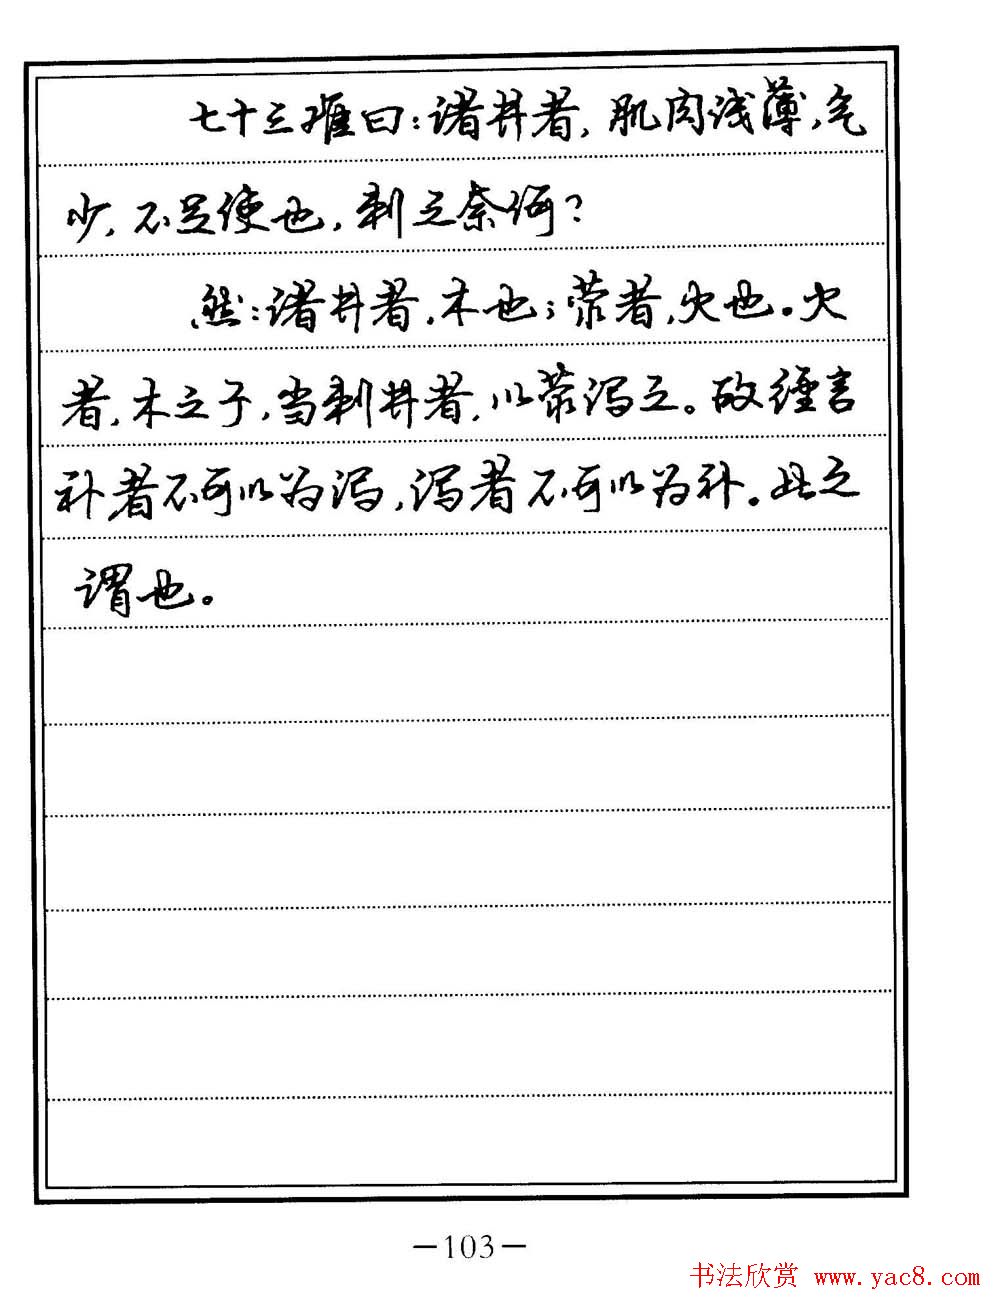 七十三难曰：诸井者，肌肉浅薄，气
少，不足使也，刺之奈何？
然：诸井者，木也；荥者，火也。火
者，木之子，当刺井者，以荥泻之。故经言
补者不可以为泻，泻者不可以为补。此之
谓也。
—103—
书法欣赏 www.yac8.com